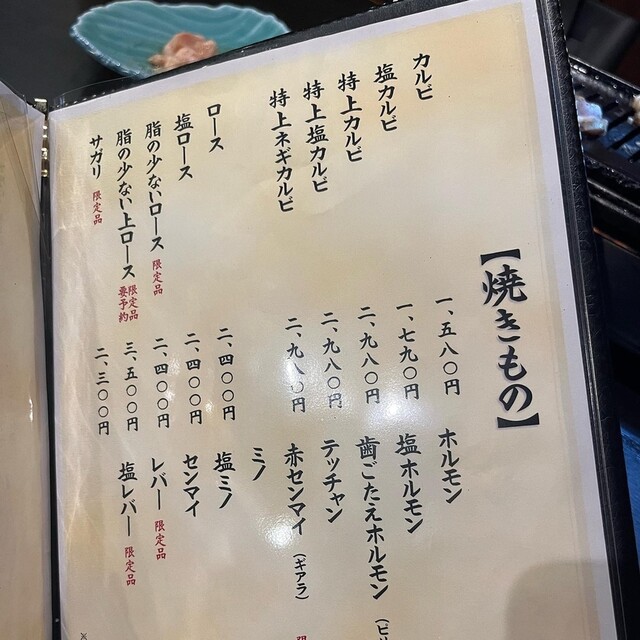 【焼きもの】
カルビ 一、五八〇円
塩カルビ 一、七九〇円
特上カルビ 二、九八〇円
特上塩カルビ 二、九八〇円
特上ネギカルビ 二、九八〇円
ロース 二、四〇〇円
塩ロース 二、四〇〇円
脂の少ないロース 限定品 二、四〇〇円
脂の少ない上ロース 限定品 要予約 三、五〇〇円
サガリ 限定品 二、三〇〇円
ホルモン
塩ホルモン
歯ごたえホルモン
テッチャン
赤センマイ（ギアラ）
ミノ
塩ミノ
センマイ
レバー 限定品
塩レバー 限定品
※